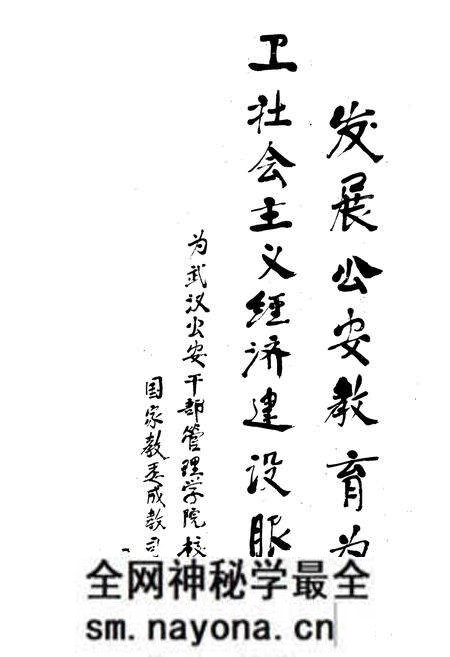 发展公安教育为
卫社会主义经济建设服
为武汉公安干部管理学院校
国家教委成教司
全网神秘学最全
sm.nayona.cn